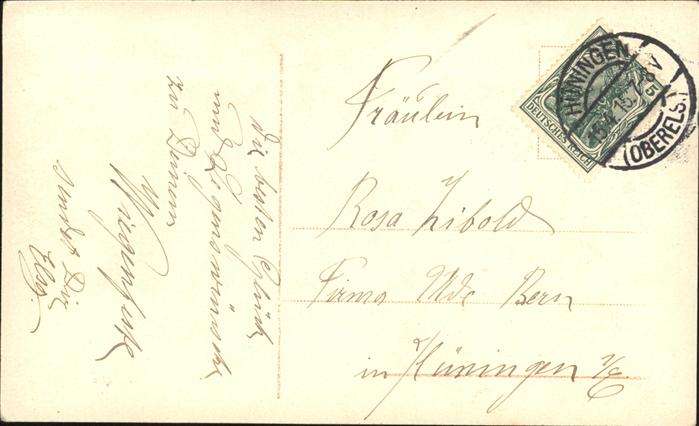 die besten Glück
und Segenswünsche
zu Deinem
Wiegenfeste
sendet Dir
Elsy.
Fräulein
Rosa Zibold
Firma Wwe Bern
in Hüningen i/E
HÜNINGEN
(OBERELS.)
DEUTSCHES REICH